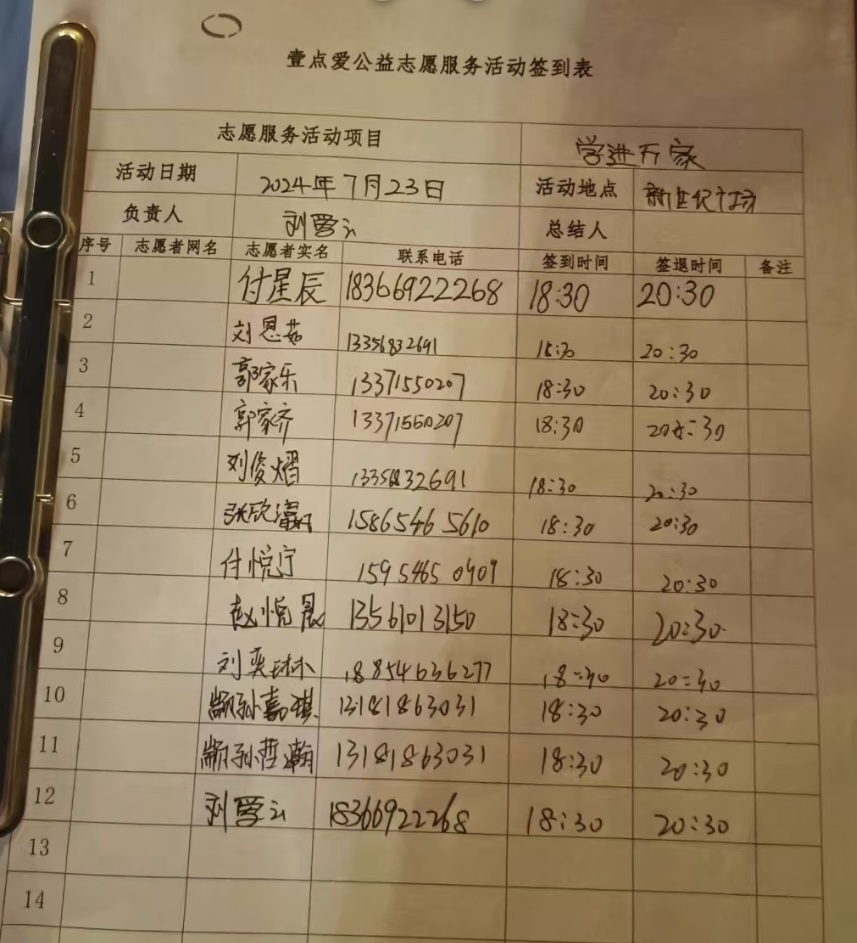 壹点爱公益志愿服务活动签到表
志愿服务活动项目 学进万家
活动日期 2024年7月23日 活动地点 新世纪广场
负责人 刘爱云 总结人
序号 志愿者网名 志愿者实名 联系电话 签到时间 签退时间 备注
1 付星辰 18366922268 18:30 20:30
2 刘恩茹 13356832691 18:30 20:30
3 郭家乐 13371550207 18:30 20:30
4 郭家齐 13371550207 18:30 20:30
5 刘俊熠 13356832691 18:30 20:30
6 张欣 15865465610 18:30 20:30
7 付悦宁 15954650909 18:30 20:30
8 赵悦晨 13561013150 18:30 20:30
9 刘奕琳 18854636277 18:30 20:30
10 颛孙嘉琪 13181863031 18:30 20:30
11 颛孙哲瀚 13181863031 18:30 20:30
12 刘爱云 18366922268 18:30 20:30
13
14